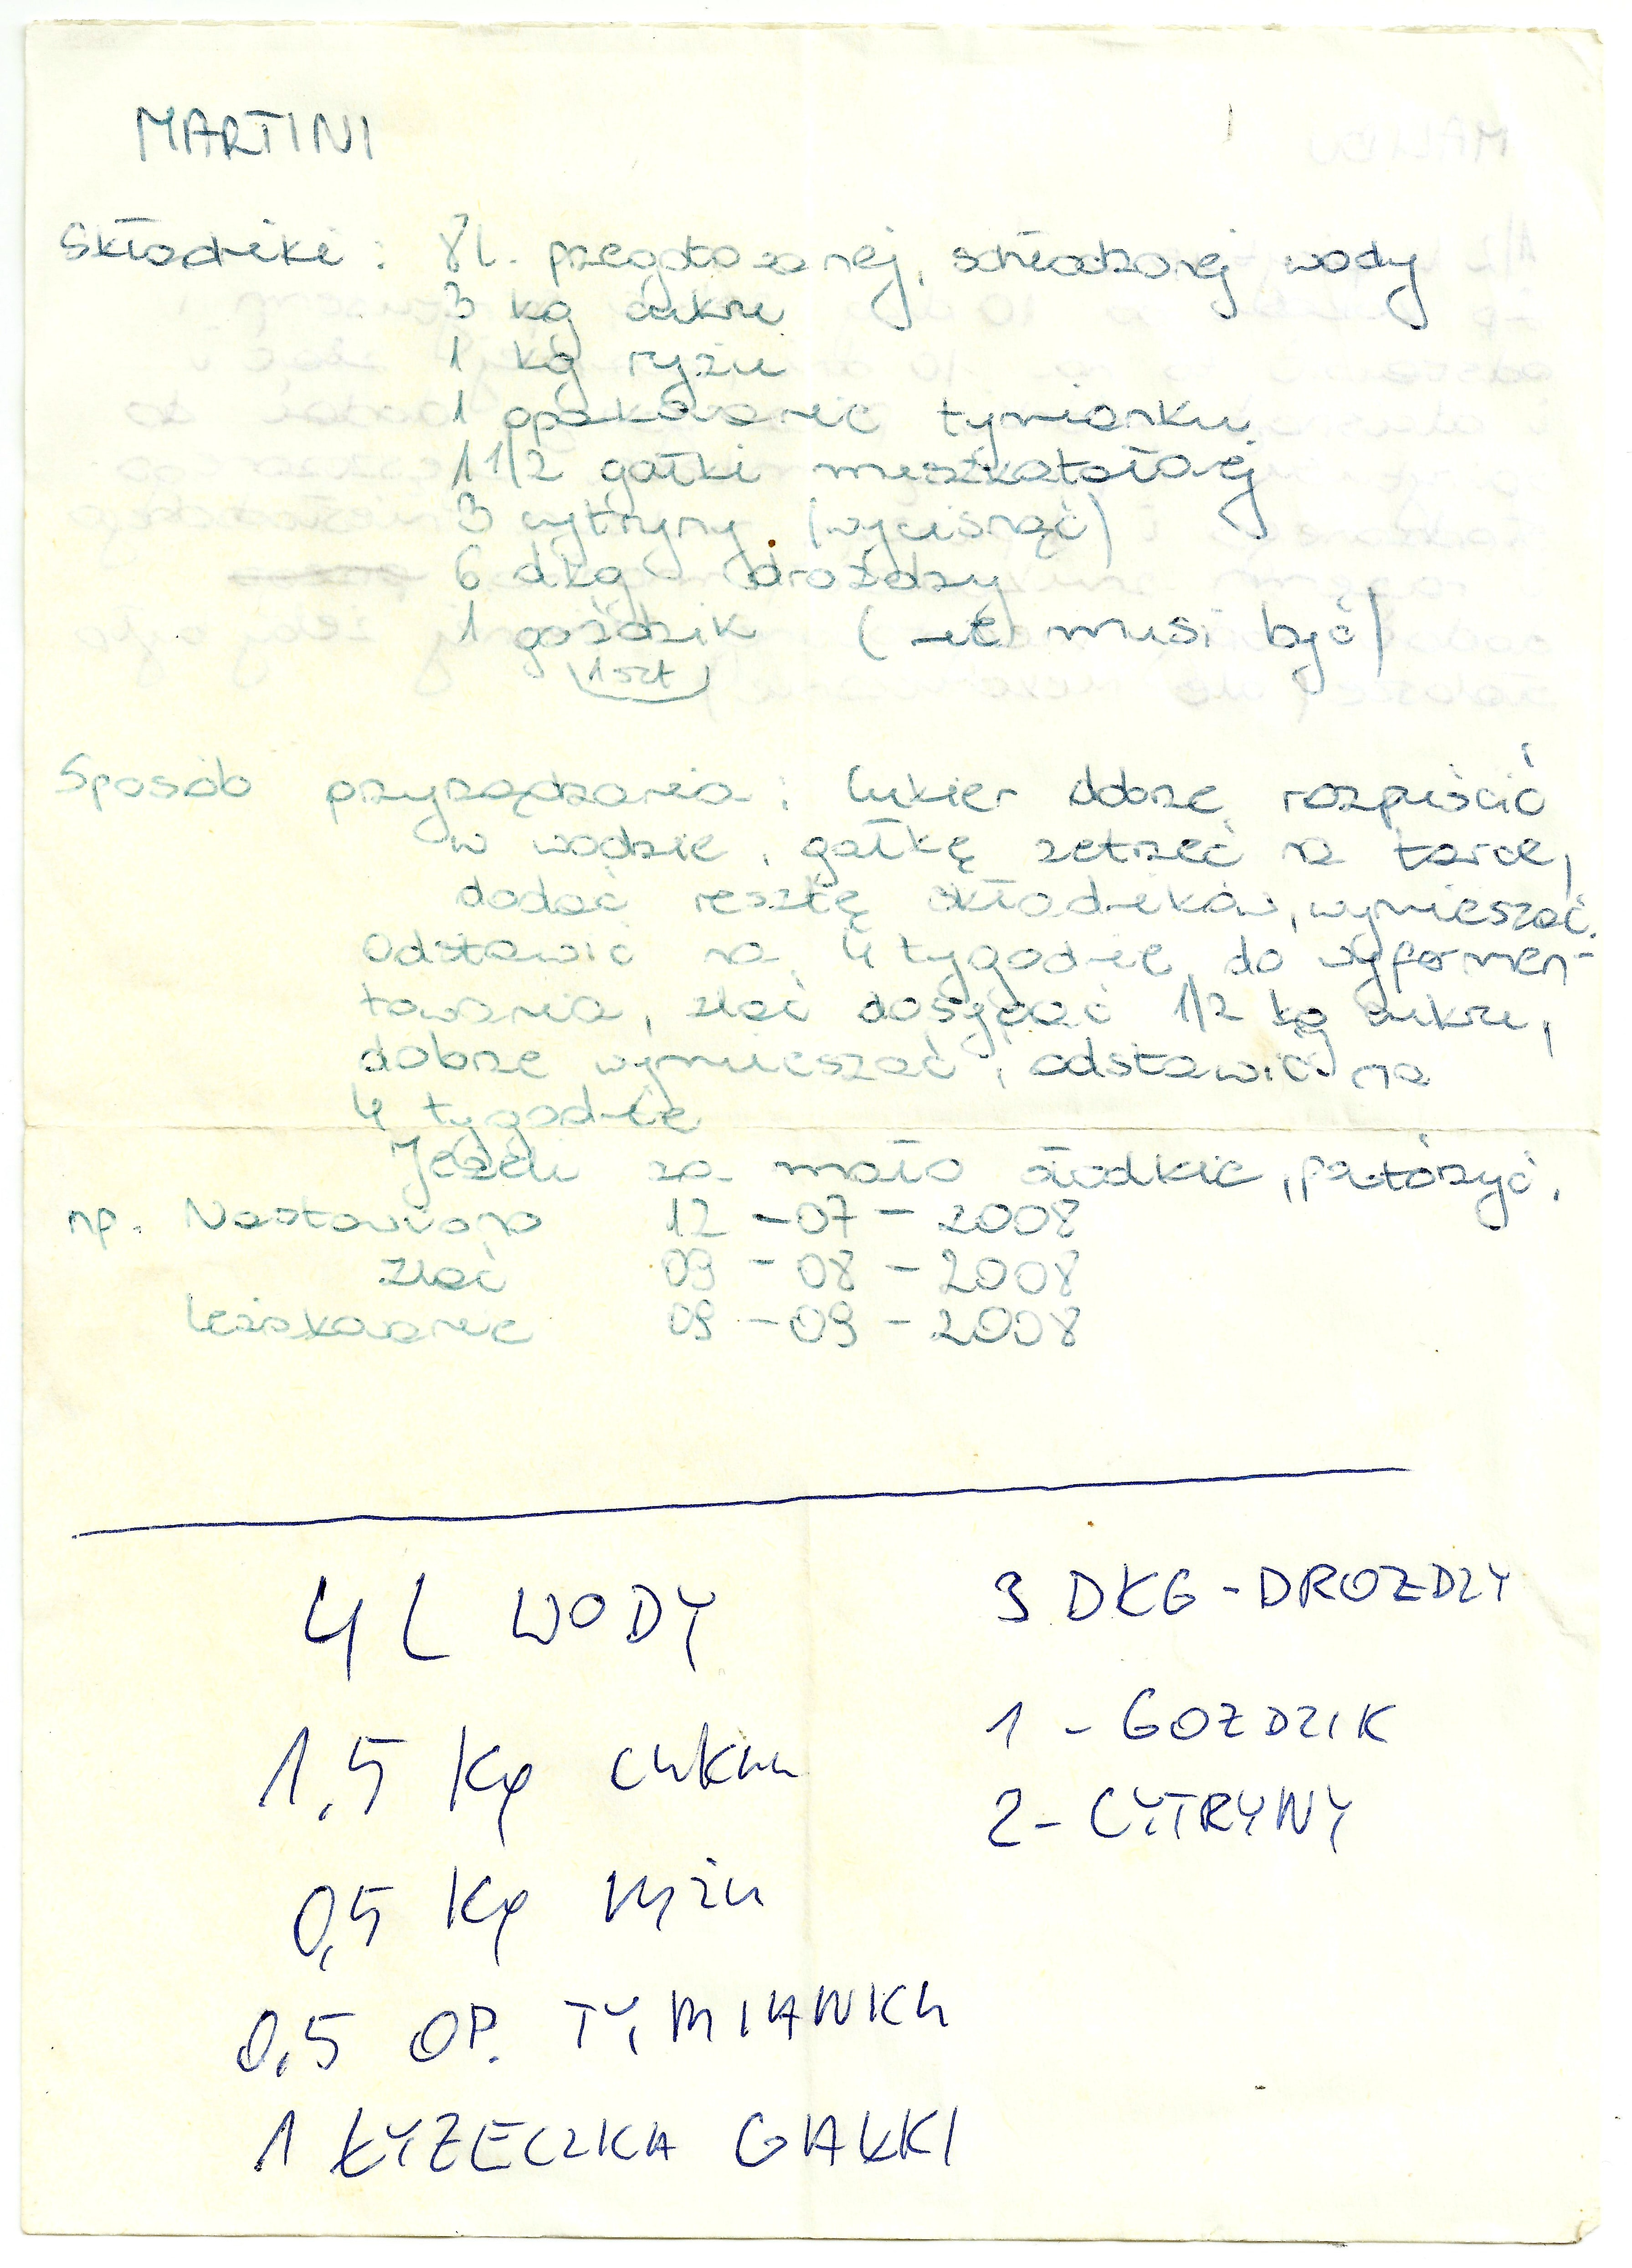 MARTINI
Składniki: 8 l. przegotowanej, schłodzonej wody
3 kg cukru
1 kg ryżu
1 opakowanie tymianku
1 1/2 gałki muszkatołowej
3 cytryny (wycisnąć)
6 dkg drożdży
1 goździk (nie musi być)
1 szt
Sposób przyrządzania: Cukier dobrze rozpuścić
w wodzie, gałkę zetrzeć na tarce,
dodać resztę składników, wymieszać.
Odstawić na 4 tygodnie do wyfermen-
towania, zlać dosypać 1/2 kg cukru,
dobrze wymieszać, odstawić na
4 tygodnie
Jeżeli za mało słodkie, potórzyć.
np. Nastawiono 12-07-2008
Zlać 09-08-2008
Leżakowanie 09-09-2008
4 L WODY
1,5 Kg cukru
0,5 Kg ryżu
0,5 OP. TYMIANKU
1 ŁYŻECZKA GAŁKI
3 DKG - DROZDZY
1 - GOZDZIK
2 - CYTRYNY